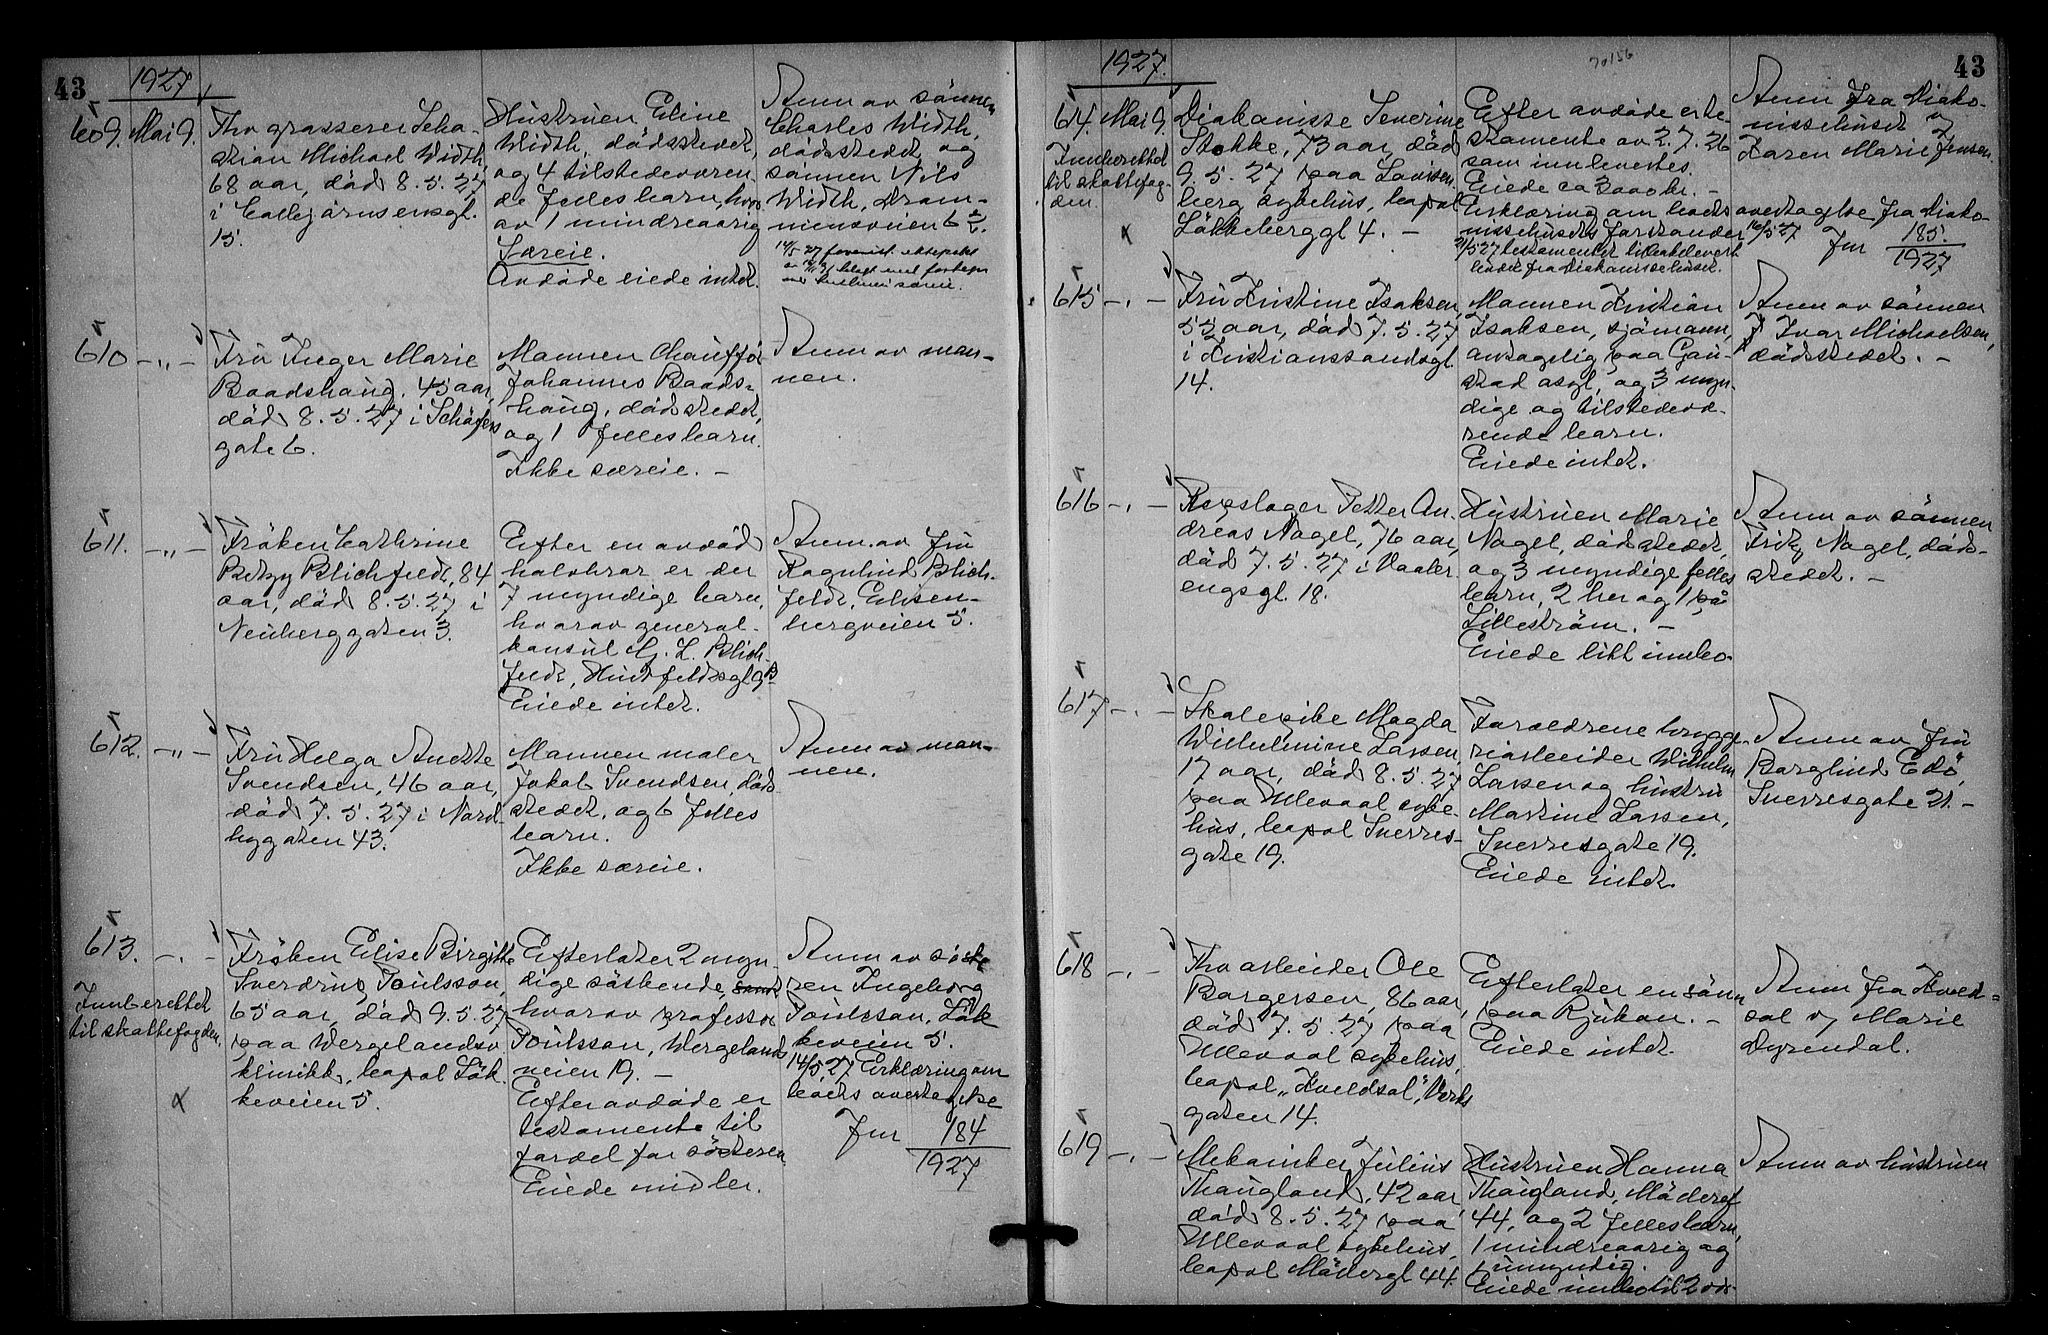 43
1927
609. Mai 9.
Fhv grosserer Seba-
stian Michael Width
68 aar, död 8.5.27
i Colbjörnsensgt.
15.
Hustruen Eline
Width, dödsstedet,
og 4 tilstedeværen
de fellesbarn, hvor
av 1 mindreaarig
Særeie.
Avdöde eiede intet.
Anm av sönnen
Charles Width,
dödsstedet og
sönnen Nils
Width, Dram-
mensveien 6
610 -"-
Fru Inger Marie
Baadshaug, 45 aar,
död 8.5.27 i Schäfers
gate 6.
Mannen Chaufför
Johannes Baads-
haug, dödsstedet,
og 1 fellesbarn.
Ikke særeie. -
Anm av man-
nen.
611. -"-
Fröken Cathrine
Betzy Blichfeldt, 84
aar, död 8.5.27 i
Neuberggaten 3.
Efter en avdöd
halvbror er der
7 myndige barn,
hvorav general-
konsul G. L. Blich-
feldt, Huitfeldtsgt 9 B
Eiede intet.
Anm. av fru
Ragnhild Blich-
feldt, Elisen-
bergveien 5.
612. -"-
Fru Helga Anette
Svendsen, 46 aar,
död 7.5.27 i Nord-
bygaten 43.
Mannen maler
Jakob Svendsen, död
stedet, og 6 felles
barn.
Ikke særeie.
Anm av man-
nen.
613. -"-
Innberettet
til skattefogden.
x
Fröken Elise Birgitte
Sverdrup Poulsson,
65 aar, död 9.5.27
paa Wergelandsv
klinikk, bopol Lök-
keveien 5.
Efterlater 2 myn-
dige söskende,
hvorav professor
Poulsson, Wergelands
veien 19. -
Efter avdöde er
testamente til
fordel for sösteren
Eiede midler.
Anm av söste
ren Ingeborg
Poulsson, Lök
keveien 5.
14/5 27 Erklæring om
boets overtagelse
Jnr 184
1927
43
1927.
70156
614. Mai 9.
Innberettet
til skattefog-
den.
x
Diakonisse Severine
Stokke, 73 aar, död
9.5.27 paa Lovisen
berg sykehus, bopol
Lökkeberggt 4. -
Efter avdöde er te-
stamente av 2.7.26
som innlevertes.
Eiede ca 3000 kr. -
Erklæring om boets overtagelse fra Diako-
nissehusets forstander 16/5 27
Anm fra Diako-
nissehuset v/
Karen Marie Jensen.
Jnr 185.
1927
615 -"-
Fru Kristine Isaksen,
55 aar, död 7.5.27
i Kristianssandsgt.
14.
Mannen Kristian
Isaksen, sjömann,
antagelig paa Gau-
stad asyl, og 3 myn-
dige og tilstedevæ-
rende barn.
Eiede intet.
Anm av sönnen
Ivar Michaelsen,
dödsstedet. -
616 -"-
Repslager Petter An-
dreas Nagel, 76 aar,
död 7.5.27 i Vaaler
engsgt. 18.
Hustruen Marie
Nagel, dödsstedet,
og 3 myndige felles
barn, 2 her og 1 på
Lilleström. -
Eiede litt innbo.
Anm av sönnen
Fritz Nagel, döds-
stedet. -
617 -"-
Skolepike Magda
Wilhelmine Larsen,
17 aar, död 8.5.27
paa Ullevaal syke-
hus, bopol Sverres-
gate 19.
Foreldrene brygge
riarbeider Wilhelm
Larsen og hustru
Martine Larsen,
Sverresgate 19.
Eiede intet.
Anm av fru
Borghild Edö,
Sverresgate 21. -
618 -"-
Fhv arbeider Ole
Borgersen, 86 aar,
död 7.5.27 paa
Ullevaal sykehus,
bopol „Kveldsol", Verks
gaten 14.
Efterlater en sönn
paa Rjukan. -
Eiede intet.
Anm fra Kveld-
sol v/ Marie
Dyrendal.
619 -"-
Mekaniker Julius
Thaugland, 42 aar,
död 8.5.27 paa
Ullevaal sykehus,
bopol Mödergt 44.
Hustruen Hanna
Thaugland, Mödergt
44, og 2 fellesbarn,
1 mindreaarig og
1 umyndig.
Eiede innbo til 200.-
Anm av hustruen